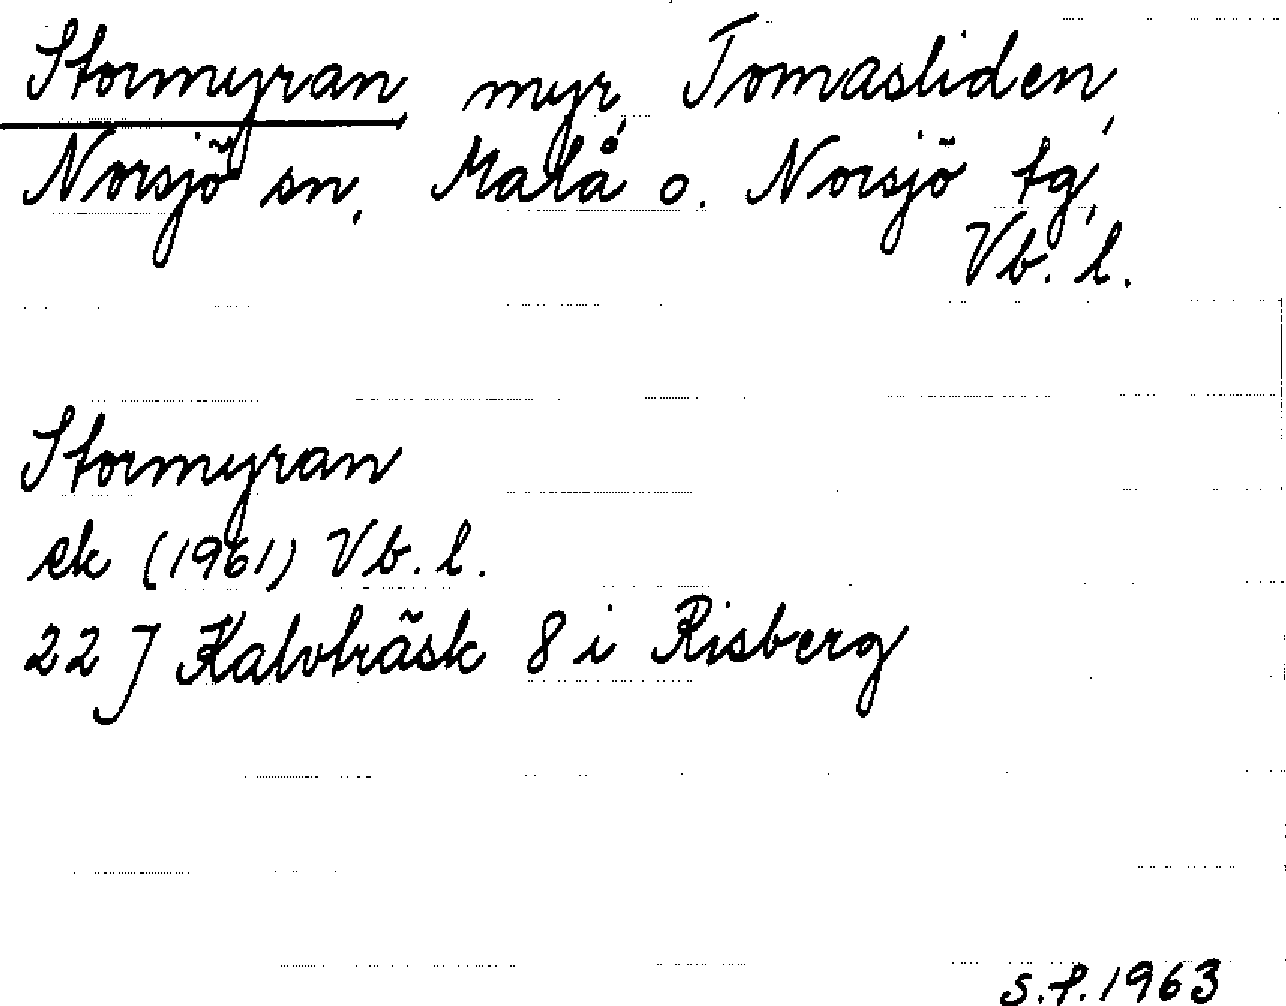 Stormyran, myr, Tomasliden,
Norsjö sn, Malå o. Norsjö tg,
Vb. l.
Stormyran
ek (1961) Vb. l.
22 J Kalvträsk 8 i Risberg
s.f. 1963